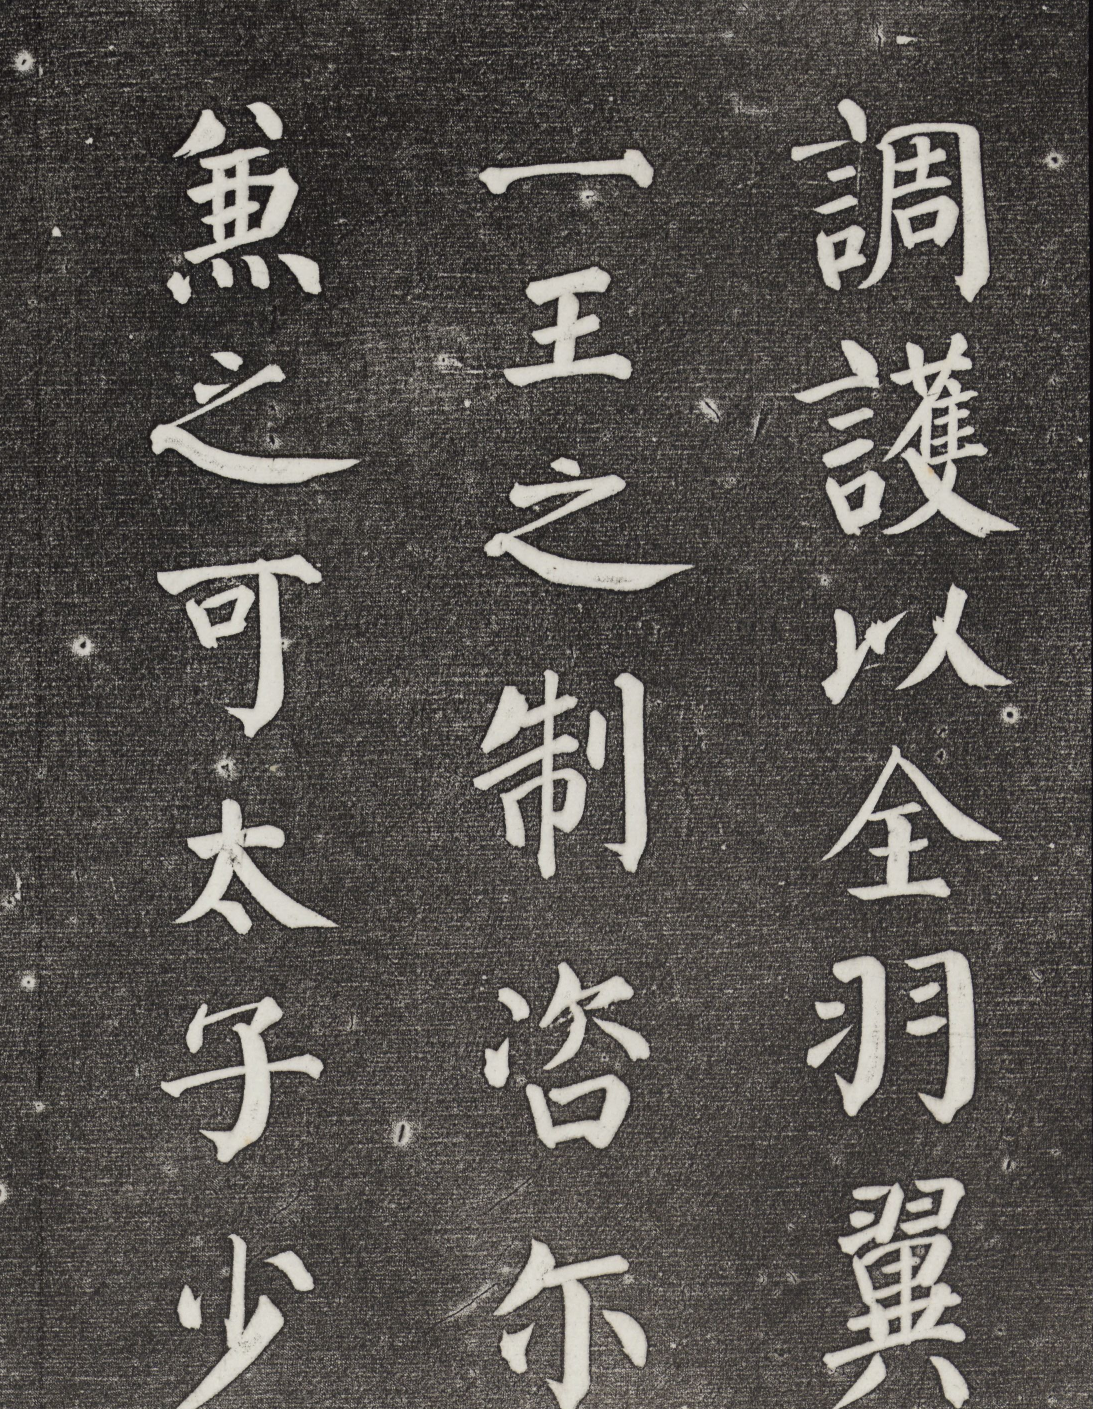 調護以全羽翼
一王之制咨尒
兼之可太子少